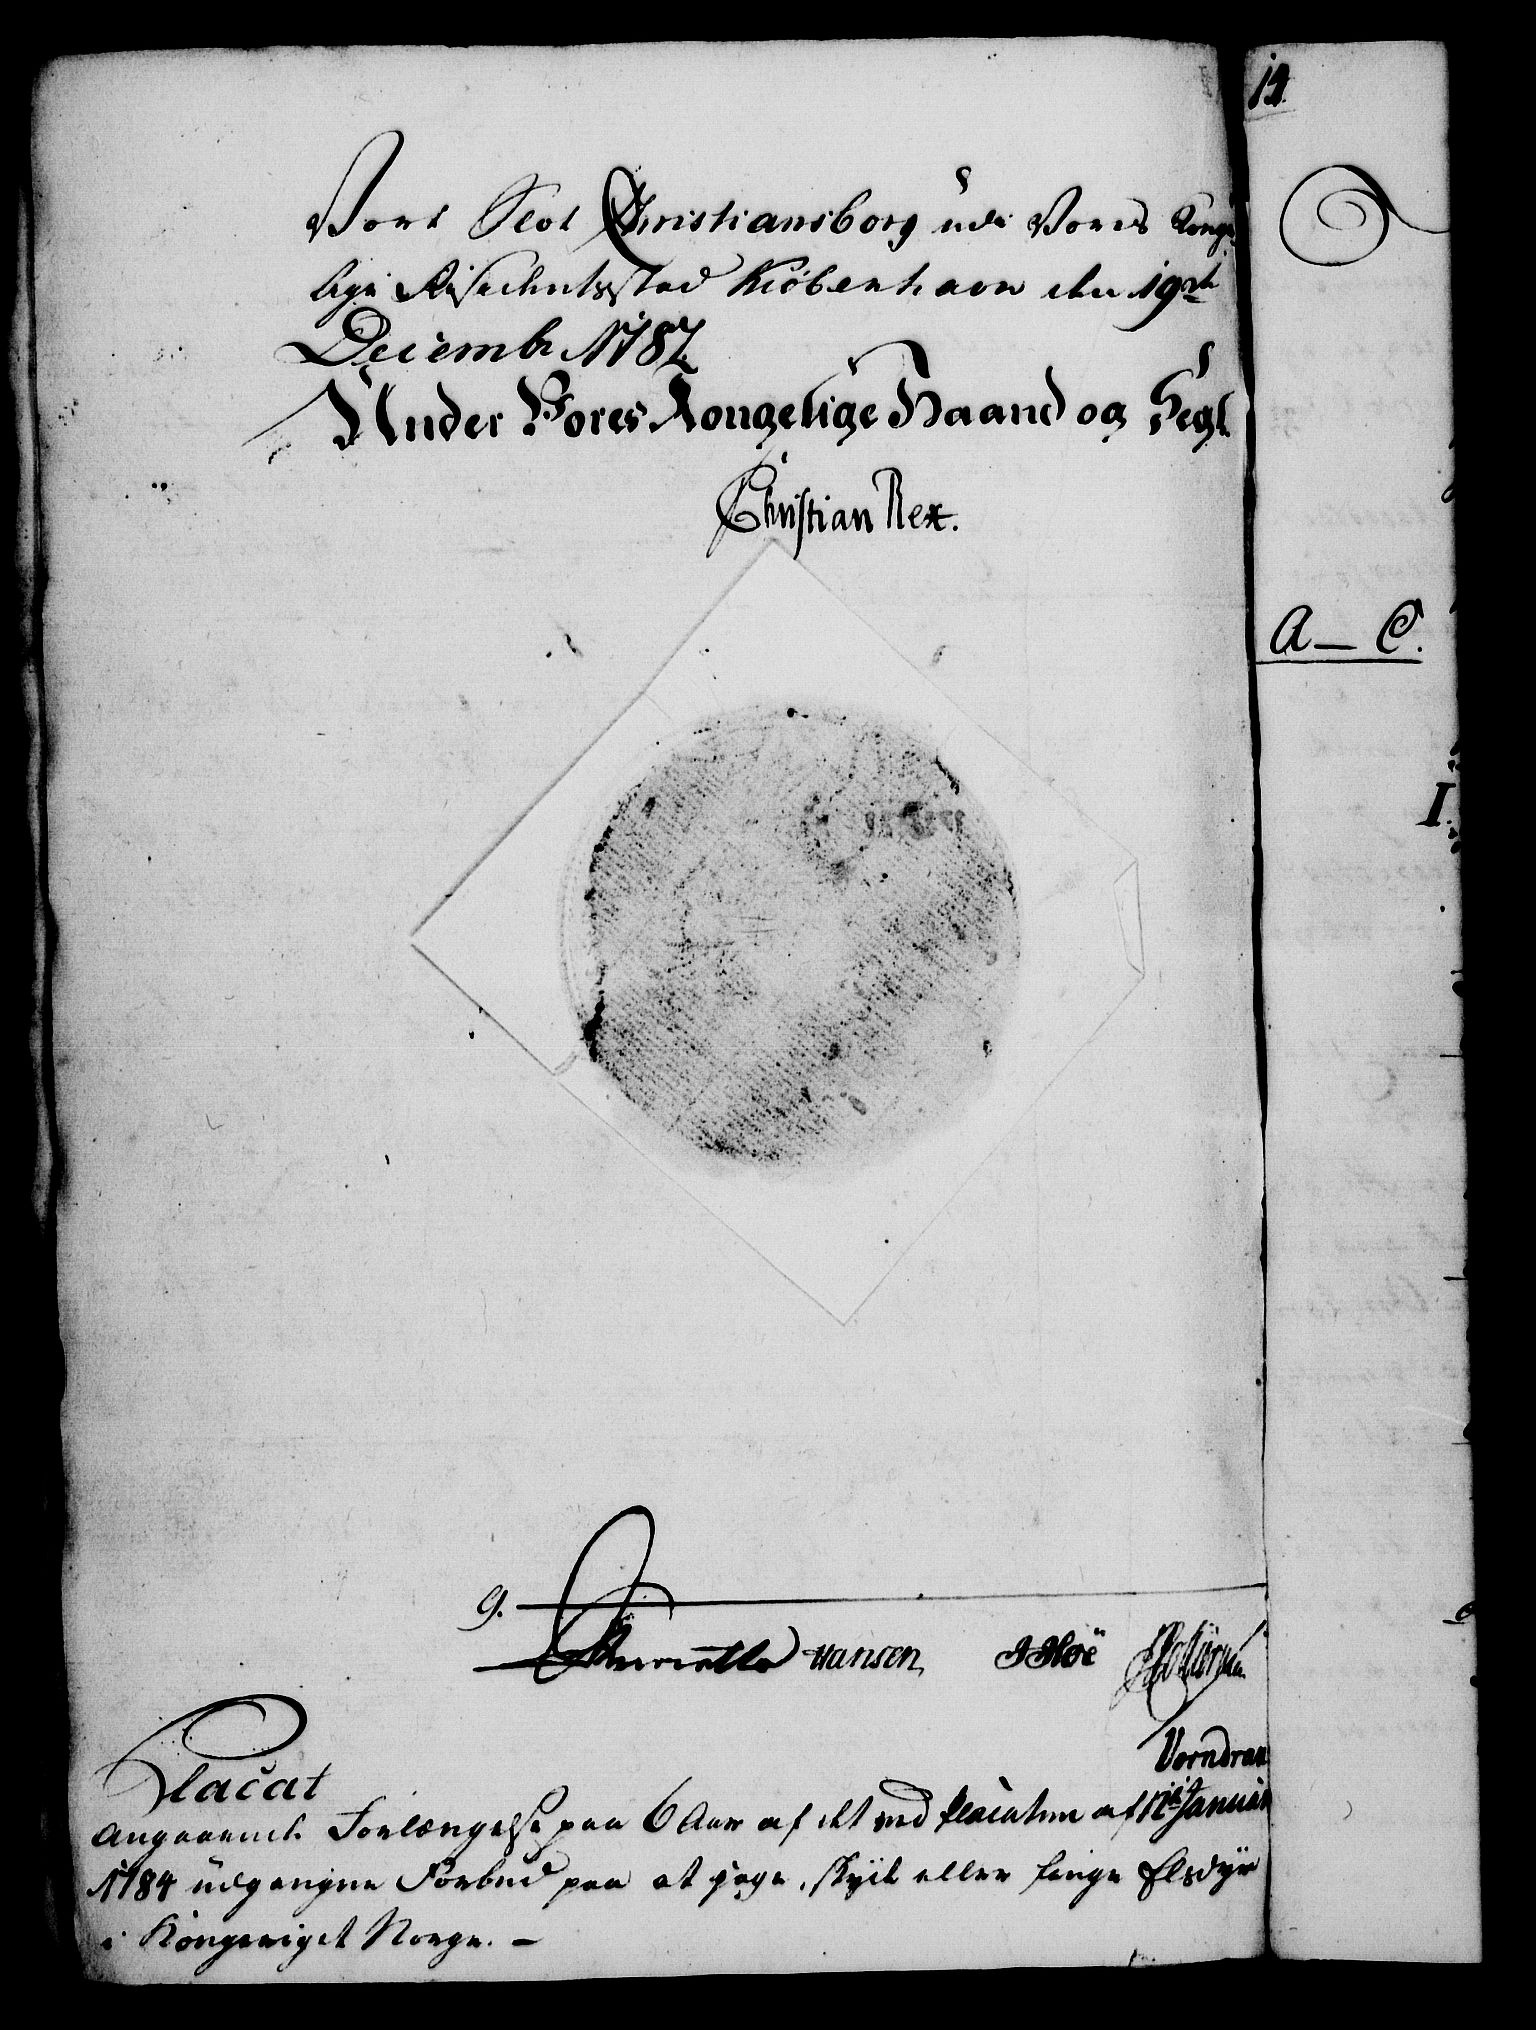 Vort Slot Christiansborg udi Vores Konge
lige Residentzstad Kiöbenhavn den 19de
Decembr 1787.
Under Vores Kongelige Haand og Segl.
Christian Rex.
g.
Hansen J Höe
Vorndran
Placat
angaaende Forlængelse paa 6 Aar af det ved Placaten af 12te Januar
1784 udgangne Forbud paa at jage, skyde eller fange Elsdyr
i Kongeriget Norge. –
14.
A – C.
I.